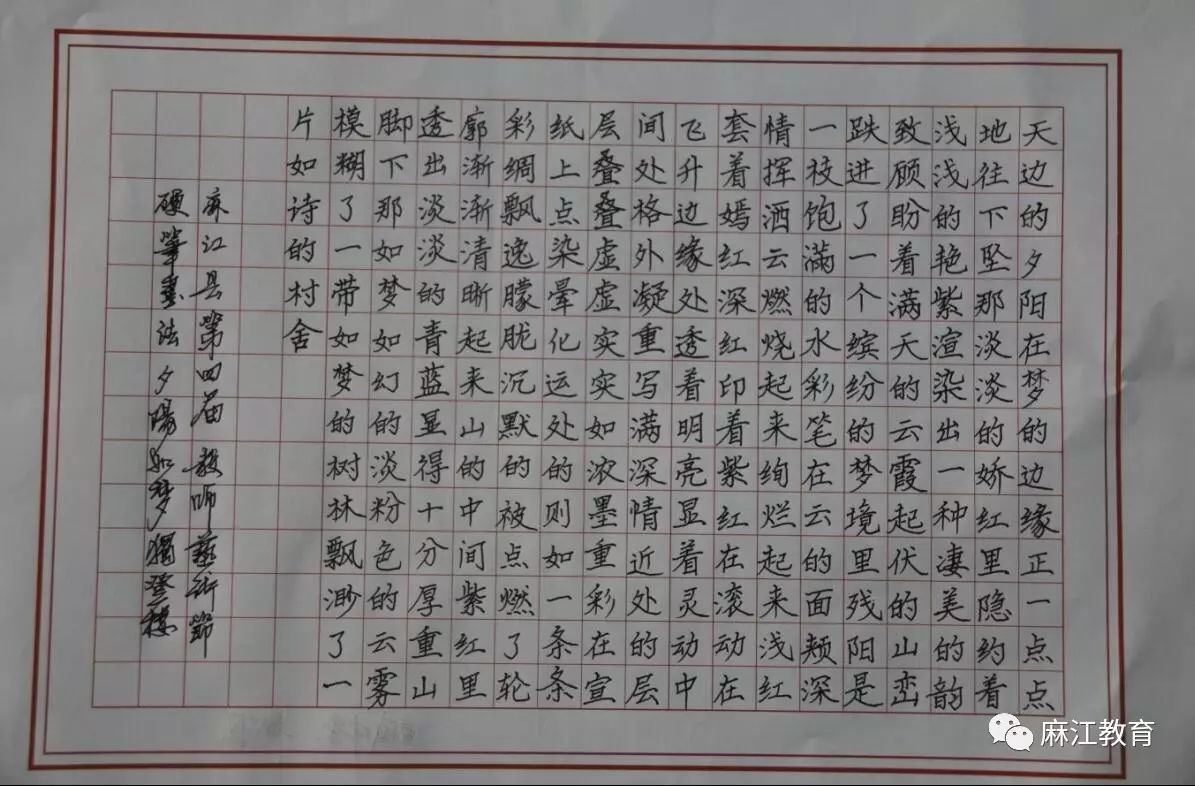 天边的夕阳在梦的边缘正一点点
地往下坠那淡淡的娇红里隐约着
浅浅的艳紫渲染出一种凄美的韵
致顾盼着满天的云霞起伏的山峦
跌进了一个缤纷的梦境里残阳是
一枝饱满的水彩笔在云的面颊深
情挥洒云燃烧起来绚烂起来浅红
套着嫣红深红印着紫红在滚动在
飞升边缘处透着明亮显着灵动中
间处格外凝重写满深情近处的层
层叠叠虚虚实实如浓墨重彩在宣
纸上点染晕化运处的则如一条条
彩绸飘逸朦胧沉默的被点燃了轮
廓渐渐清晰起来山的中间紫红里
透出淡淡的青蓝显得十分厚重山
脚下那如梦如幻的淡粉色的云雾
模糊了一带如梦的树林飘渺了一
片如诗的村舍
麻江县第四届教师藝術節
硬筆書法夕陽如梦獨登楼
麻江教育